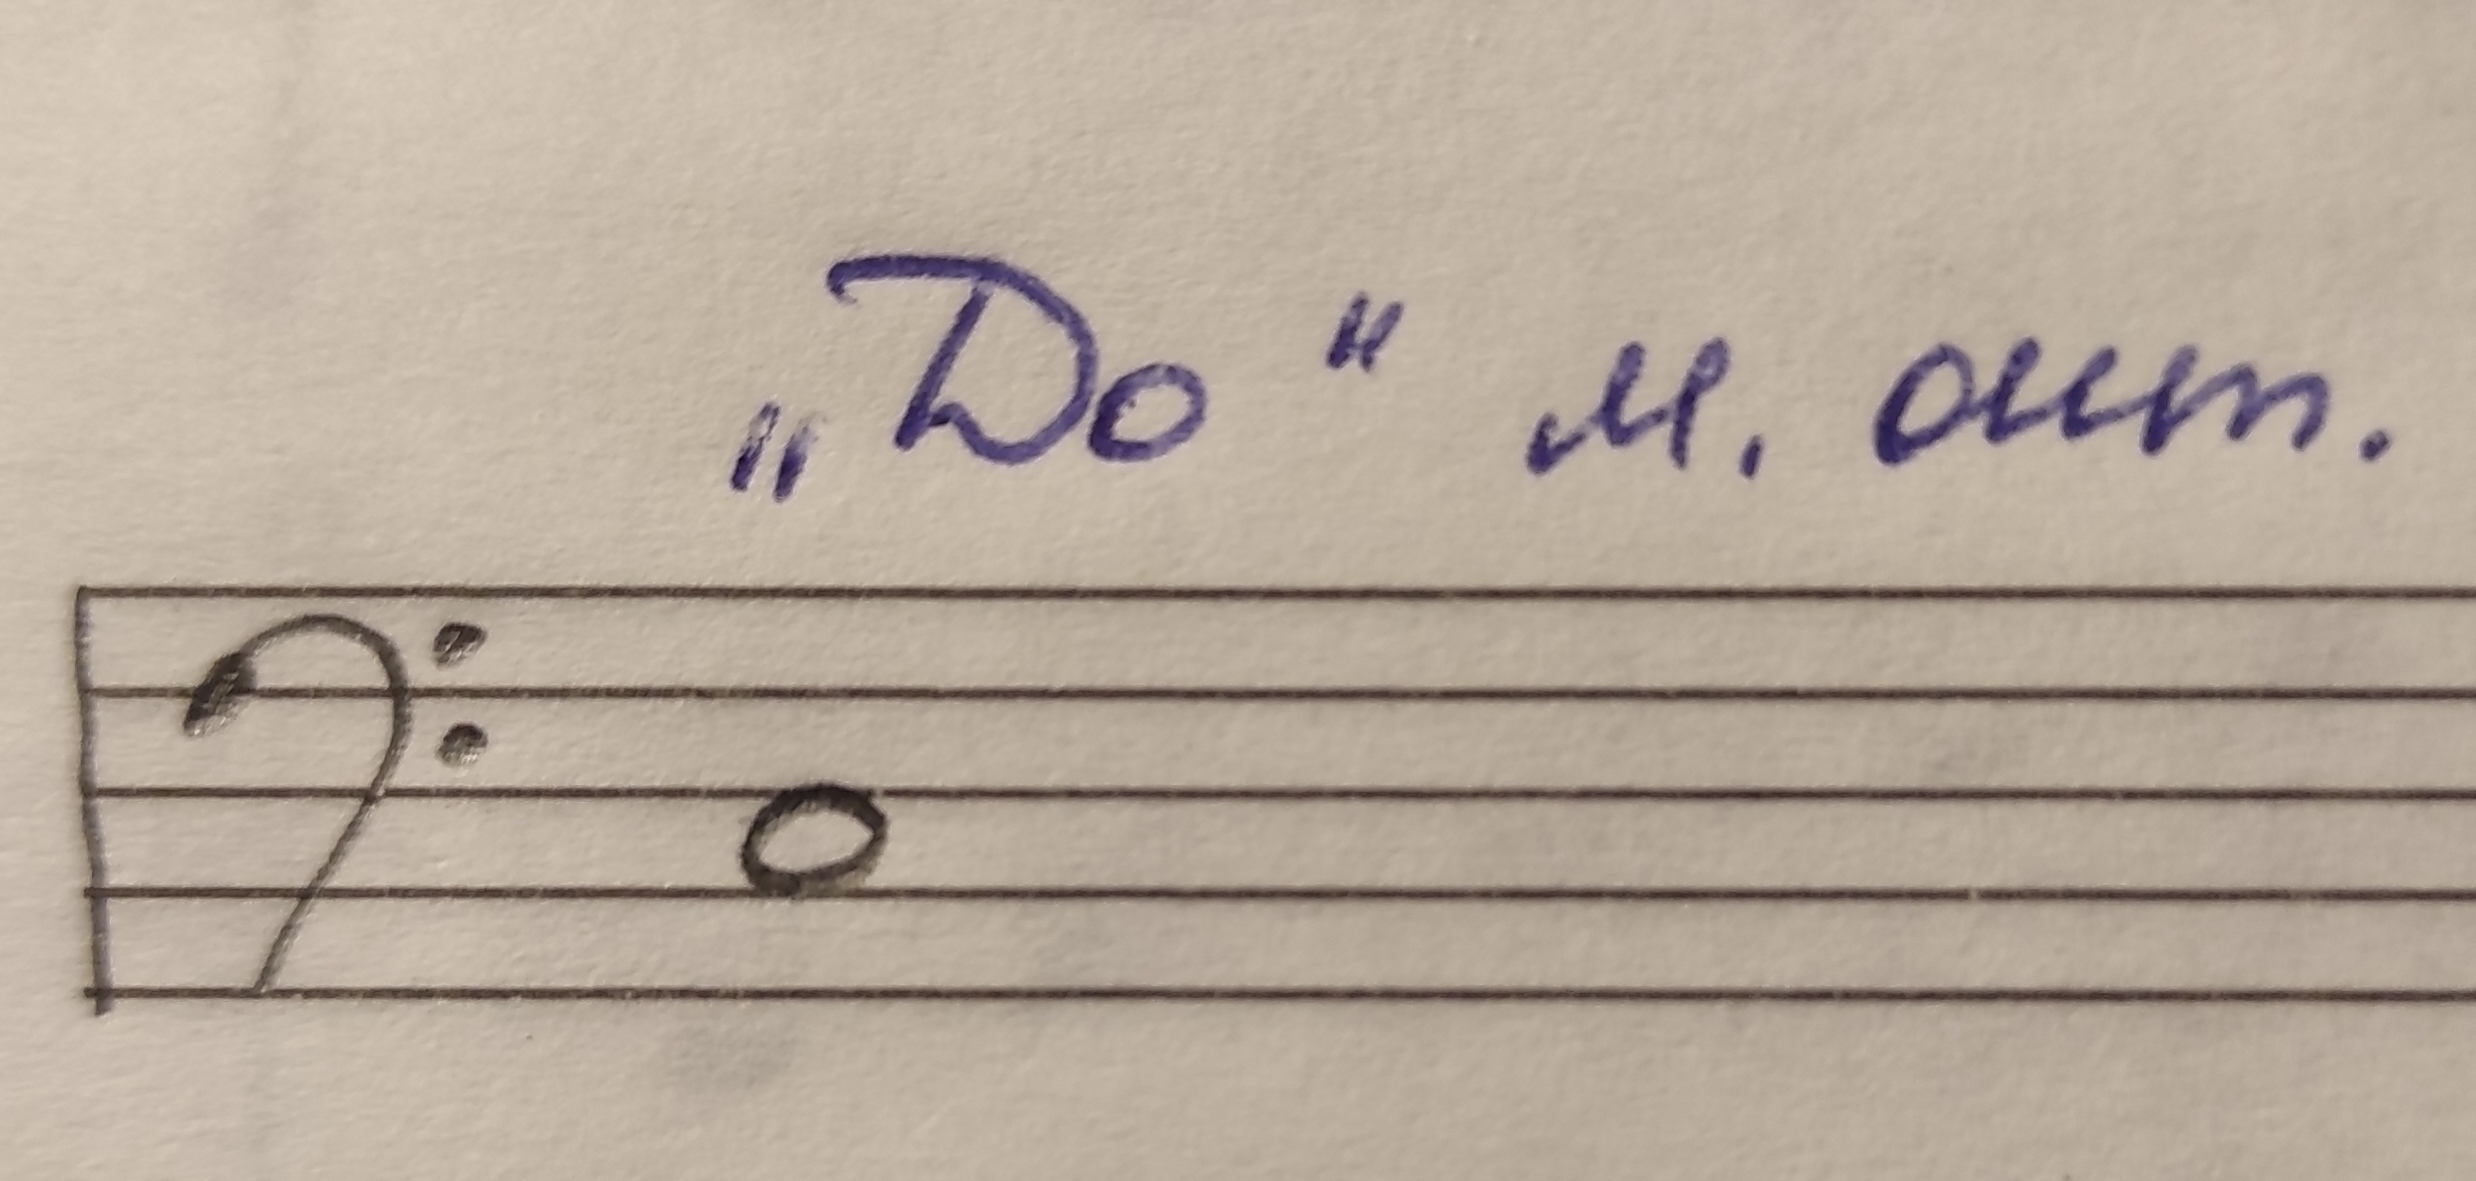 „До“ м. окт.